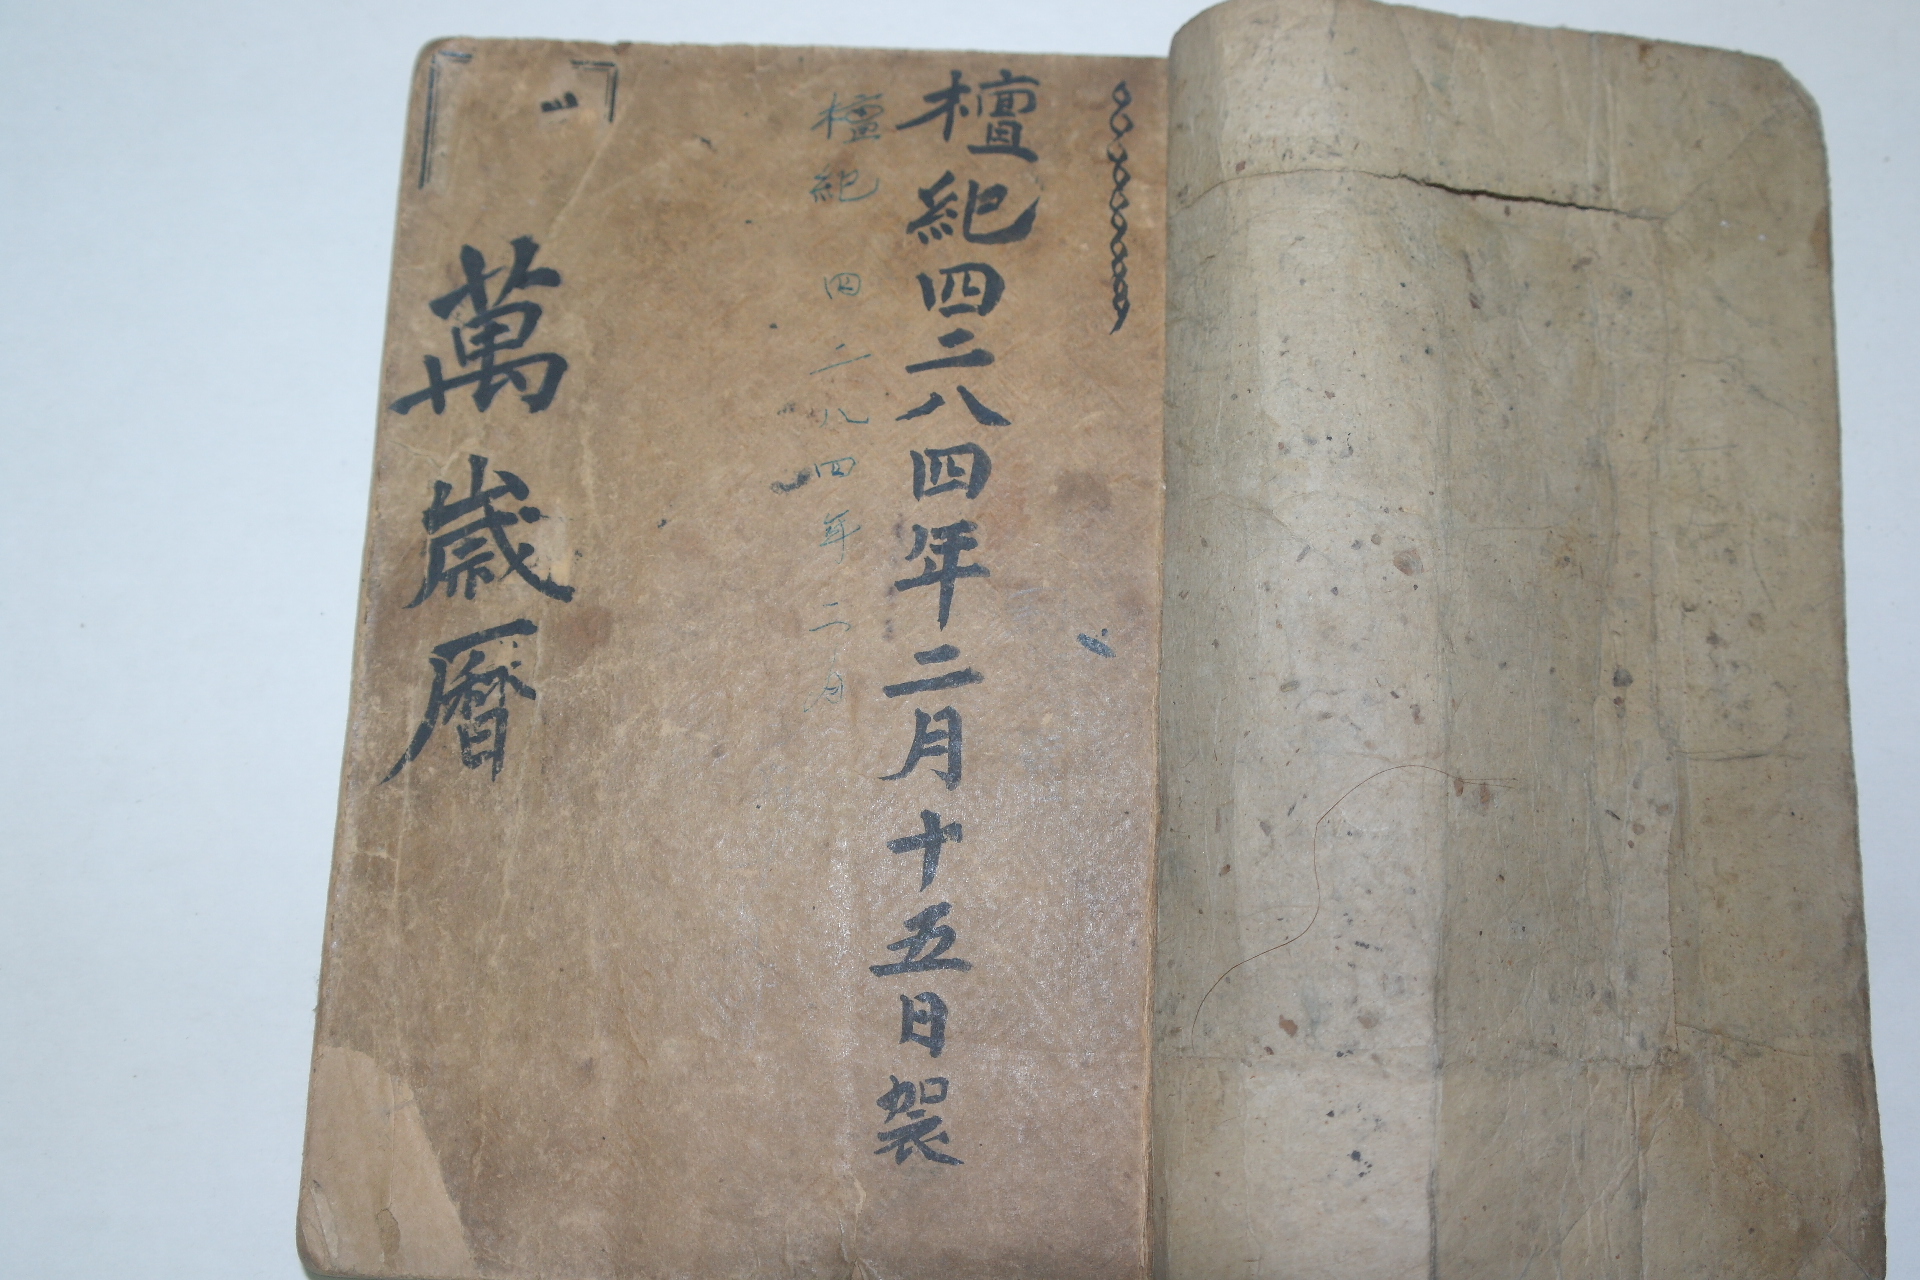 檀紀四二八四年二月十五日袈
檀紀 四二八四年二月
萬歲曆